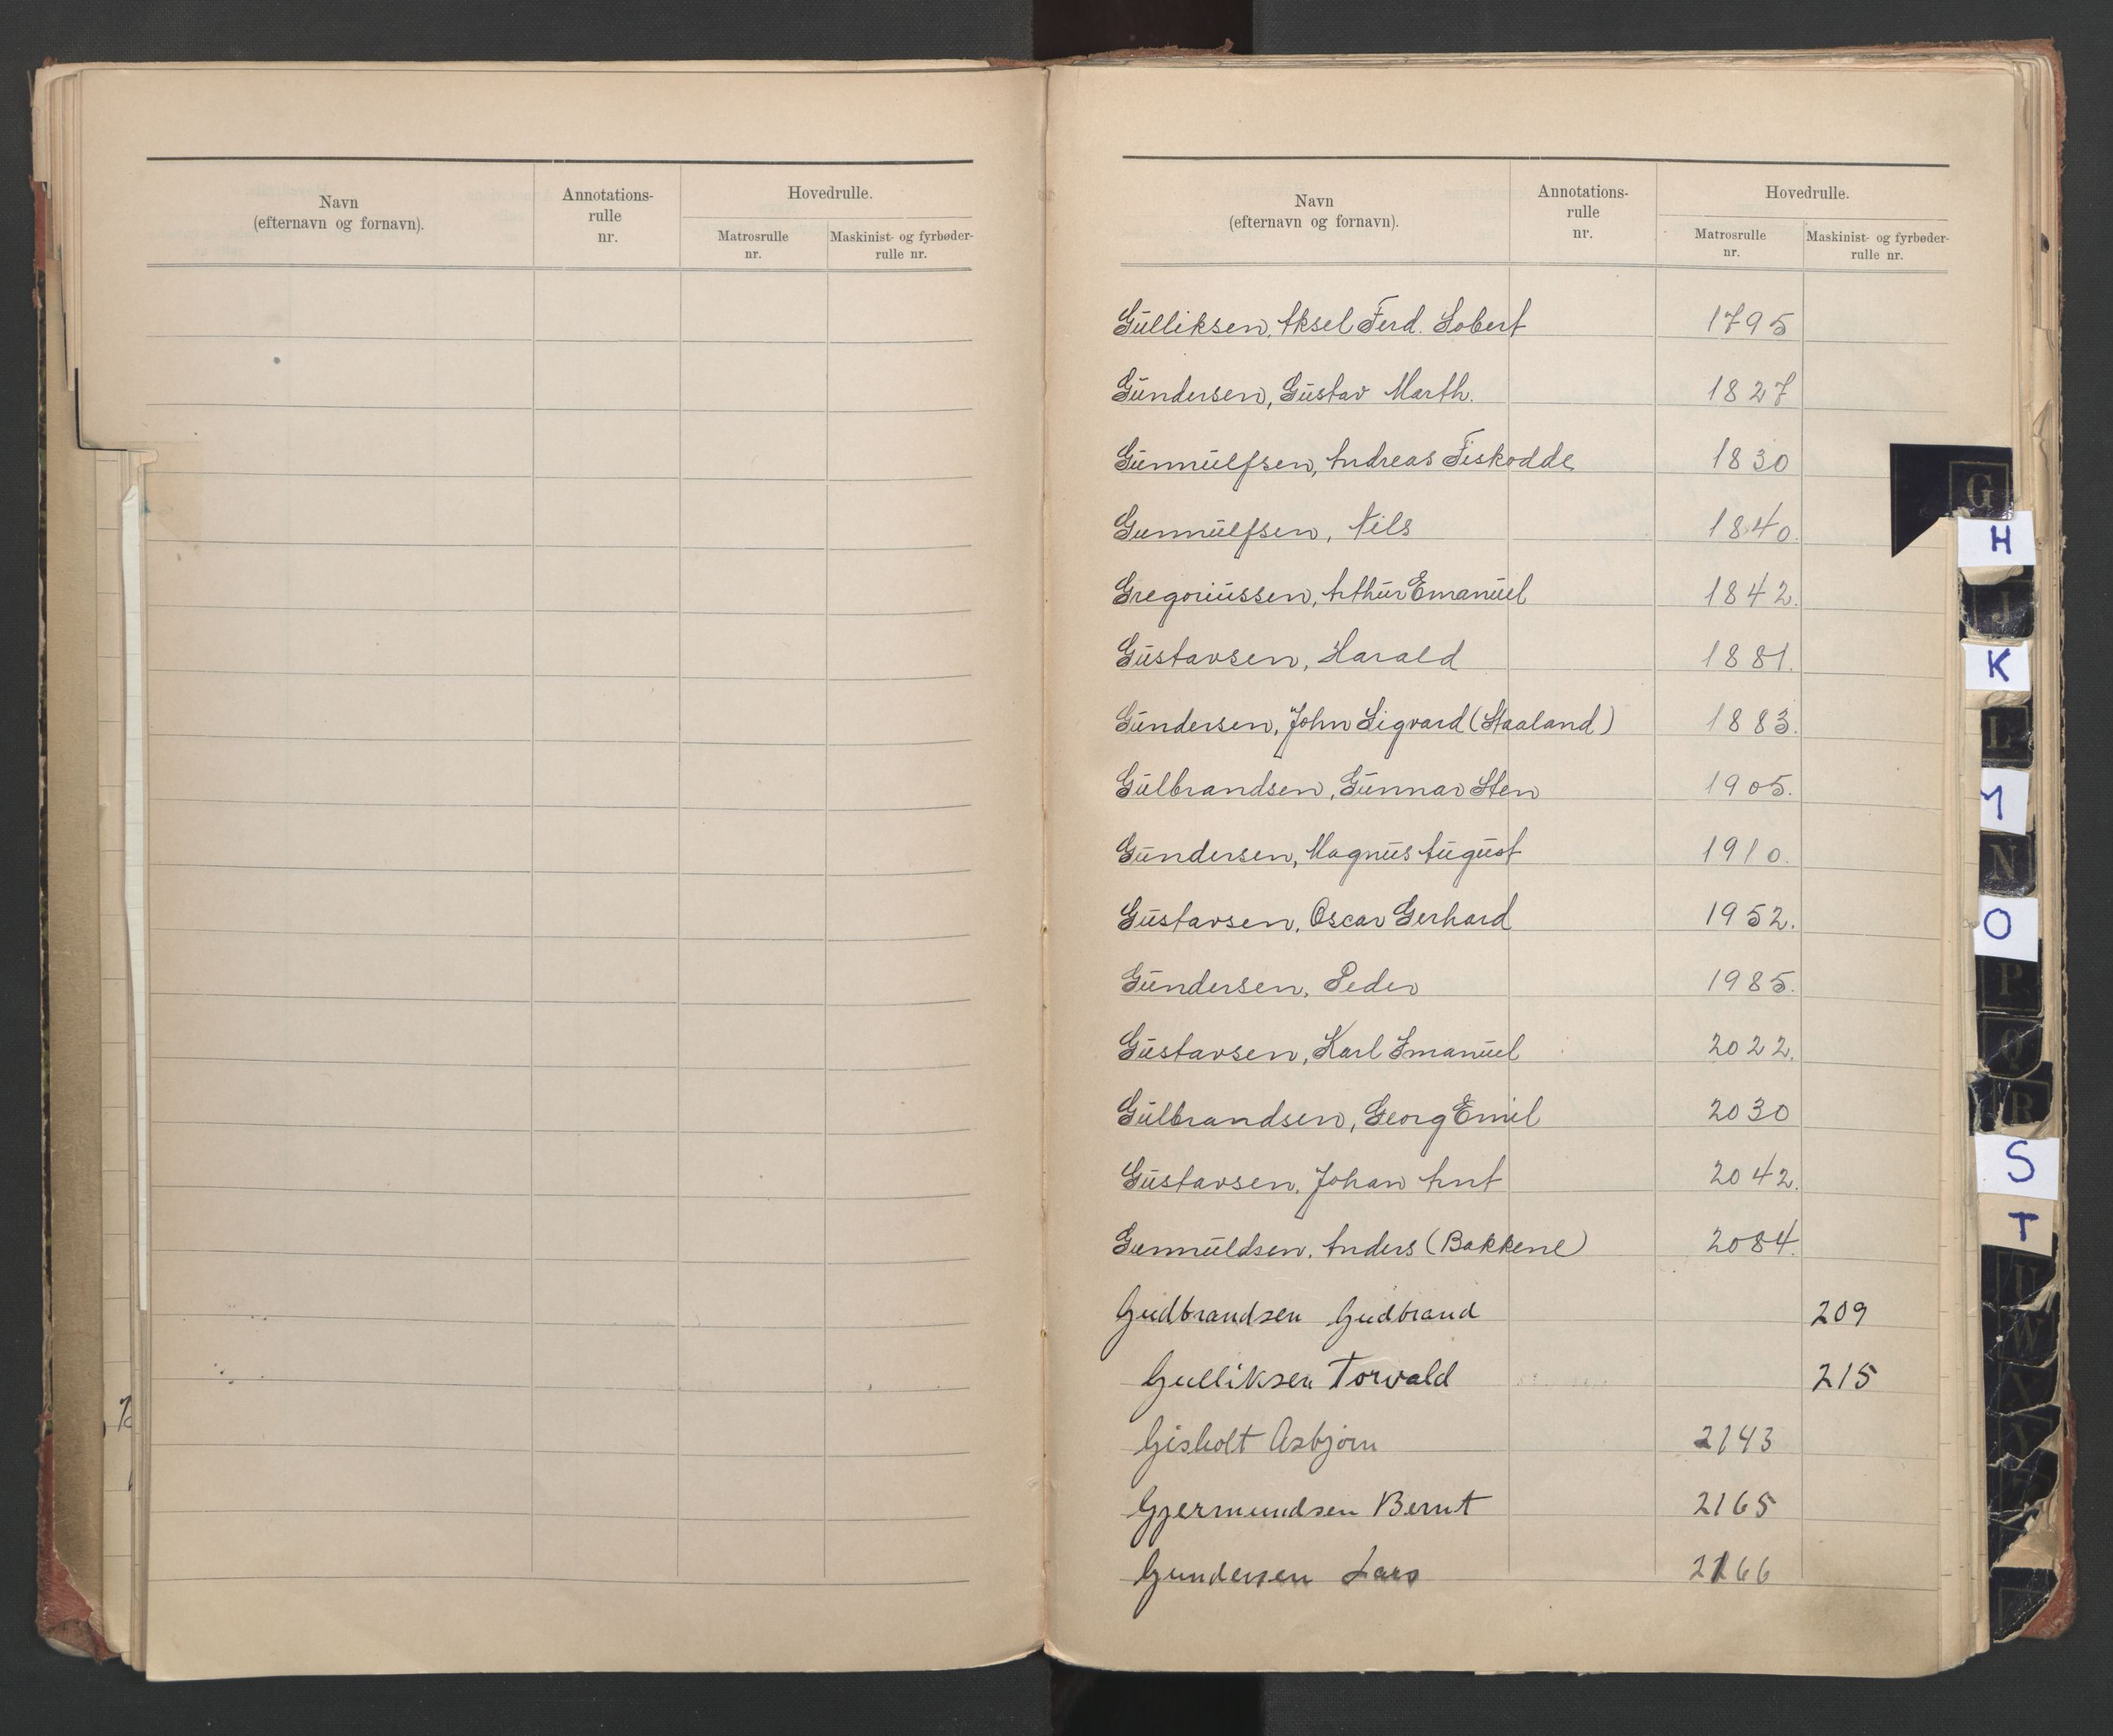 Navn
(efternavn og fornavn).
Annotations-
rulle
nr.
Hovedrulle.
Matrosrulle
nr.
Maskinist- og fyrbøder-
rulle nr.
Navn
(efternavn og fornavn).
Annotations-
rulle
nr.
Hovedrulle.
Matrosrulle
nr.
Maskinist- og fyrbøder-
rulle nr.
Gulliksen, Aksel Ferd. Lobert 1795
Gundersen, Gustav Marth. 1827
Gunnulfsen, Andreas Fiskodde 1830
Gunnulfsen, Nils 1840.
Gregoriussen, Arthur Emanuel 1842.
Gustavsen, Harald 1881.
Gundersen, John Sigvard (Staaland) 1883.
Gulbrandsen, Gunnar Sten 1905.
Gundersen, Magnus August 1910.
Gustavsen, Oscar Gerhard 1952.
Gundersen, Peder 1985.
Gustavsen, Karl Imanuel 2022.
Gulbrandsen, Georg Emil 2030
Gustavsen, Johan Arnt 2042.
Gunnuldsen, Anders (Bakkene) 2084.
Gudbrandsen Gudbrand 209
Gulliksen Torvald 215
Gisholt Asbjørn 2143
Gjermundsen Bernt 2165
Gundersen Lars 2166
G
H
J
K
L
M
N
O
P
Q
R
S
T
U
W
X
Y